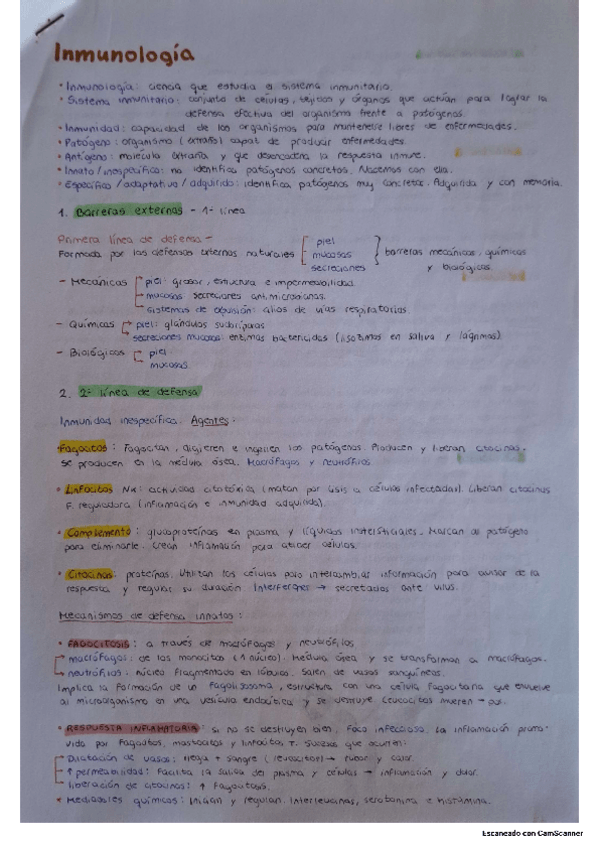 Inmunología
• Inmunología: ciencia que estudia el sistema inmunitario.
• Sistema inmunitario: conjunto de células, tejidos y órganos que actúan para lograr la
defensa efectiva del organismo frente a patógenos.
• Inmunidad: capacidad de los organismos para mantenerse libres de enfermedades.
• Patógeno: organismo (extraño) capaz de producir enfermedades.
• Antígeno: molécula extraña y que desencadena la respuesta inmune.
• Innato / inespecífico: no identifica patógenos concretos. Nacemos con ella.
• Específico / adaptativa / adquirido: identifica patógenos muy concretos. Adquirida y con memoria.
1. Barreras externas - 1ª línea
Primera línea de defensa -
Formada por las defensas externas naturales piel mucosas secreciones barreras mecánicas, químicas y biológicas.
- Mecánicas piel: grosor, estructura e impermeabilidad.
mucosas: secreciones antimicrobianas.
sistemas de expulsión: cilios de vías respiratorias.
- Químicas piel: glándulas sudoríparas
secreciones mucosas: enzimas bactericidas (lisozimas en saliva y lágrimas).
- Biológicas piel
mucosas.
2. 2ª línea de defensa
Inmunidad inespecífica. Agentes:
• Fagocitos: Fagocitan, digieren e ingieren los patógenos. Producen y liberan citocinas.
Se producen en la médula ósea. Macrófagos y neutrófilos
• Linfocitos NK: actividad citotóxica (matan por lisis a células infectadas). Liberan citocinas
F. reguladora (inflamación e inmunidad adquirida).
• Complemento: glucoproteínas en plasma y líquidos intersticiales. Marcan al patógeno
para eliminarle. Crean inflamación para atraer células.
• Citocinas: proteínas. Utilizan las células para intercambiar información para avisar de la
respuesta y regular su duración. Interferones → secretadas ante virus.
Mecanismos de defensa innatos:
• FAGOCITOSIS: a través de macrófagos y neutrófilos
macrófagos: de los monocitos (1 núcleo). Médula ósea y se transforman a macrófagos.
neutrófilos: núcleo fragmentado en lóbulos. Salen de vasos sanguíneos.
Implica la formación de un fagolisosoma, estructura con una célula fagocitaria que envuelve
al microorganismo en una vesícula endocítica y se destruye. Leucocitos mueren → pus.
• RESPUESTA INFLAMATORIA: si no se destruyen bien, foco infeccioso. La inflamación promo-
vida por fagocitos, mastocitos y linfocitos T. Sucesos que ocurren:
Dilatación de vasos: llega + sangre → rubor y calor.
↑ permeabilidad: facilita la salida del plasma y células → inflamación y dolor.
liberación de citocinas: ↑ fagocitosis.
• Mediadores químicos: inician y regulan. Interleucinas, serotonina e histamina.
Escaneado con CamScanner